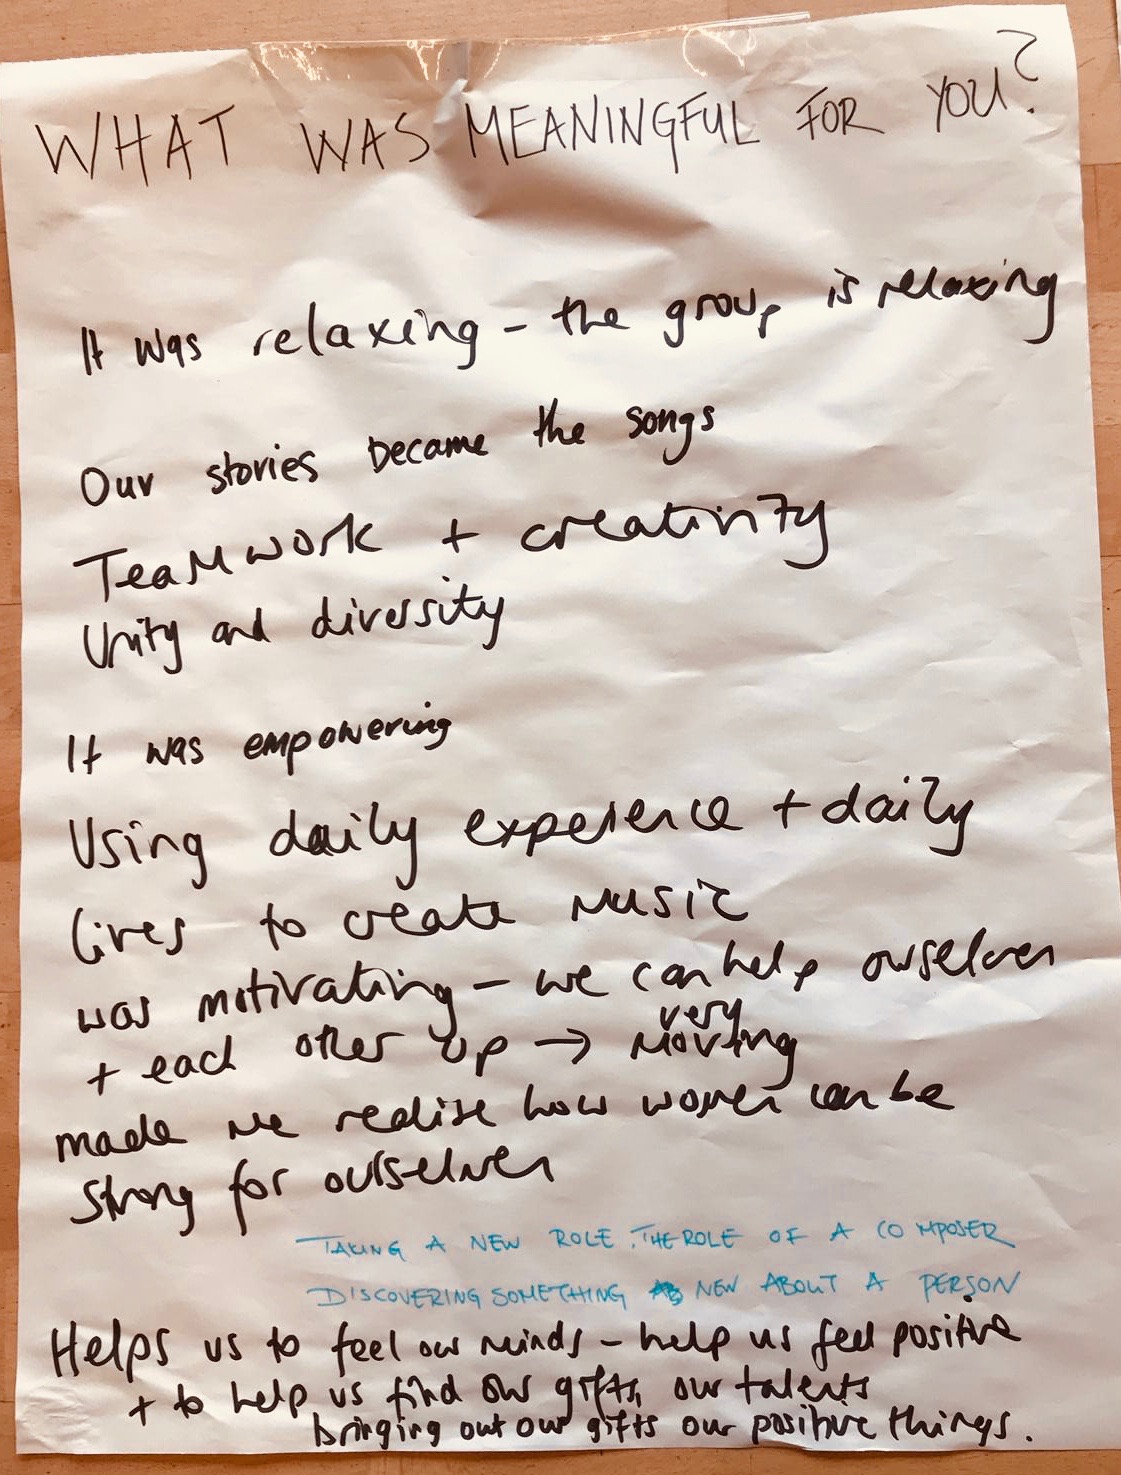 WHAT WAS MEANINGFUL FOR YOU?
It was relaxing - the group is relaxing
Our stories became the songs
Teamwork + creativity
Unity and diversity
It was empowering
Using daily experience + daily
lives to create music
was motivating - we can help ourselves
+ each other up → very moving
made me realise how women can be
strong for ourselves
TAKING A NEW ROLE. THE ROLE OF A COMPOSER
DISCOVERING SOMETHING NEW ABOUT A PERSON
Helps us to feel our minds - help us feel positive
+ to help us find our gifts, our talents
bringing out our gifts our positive things.